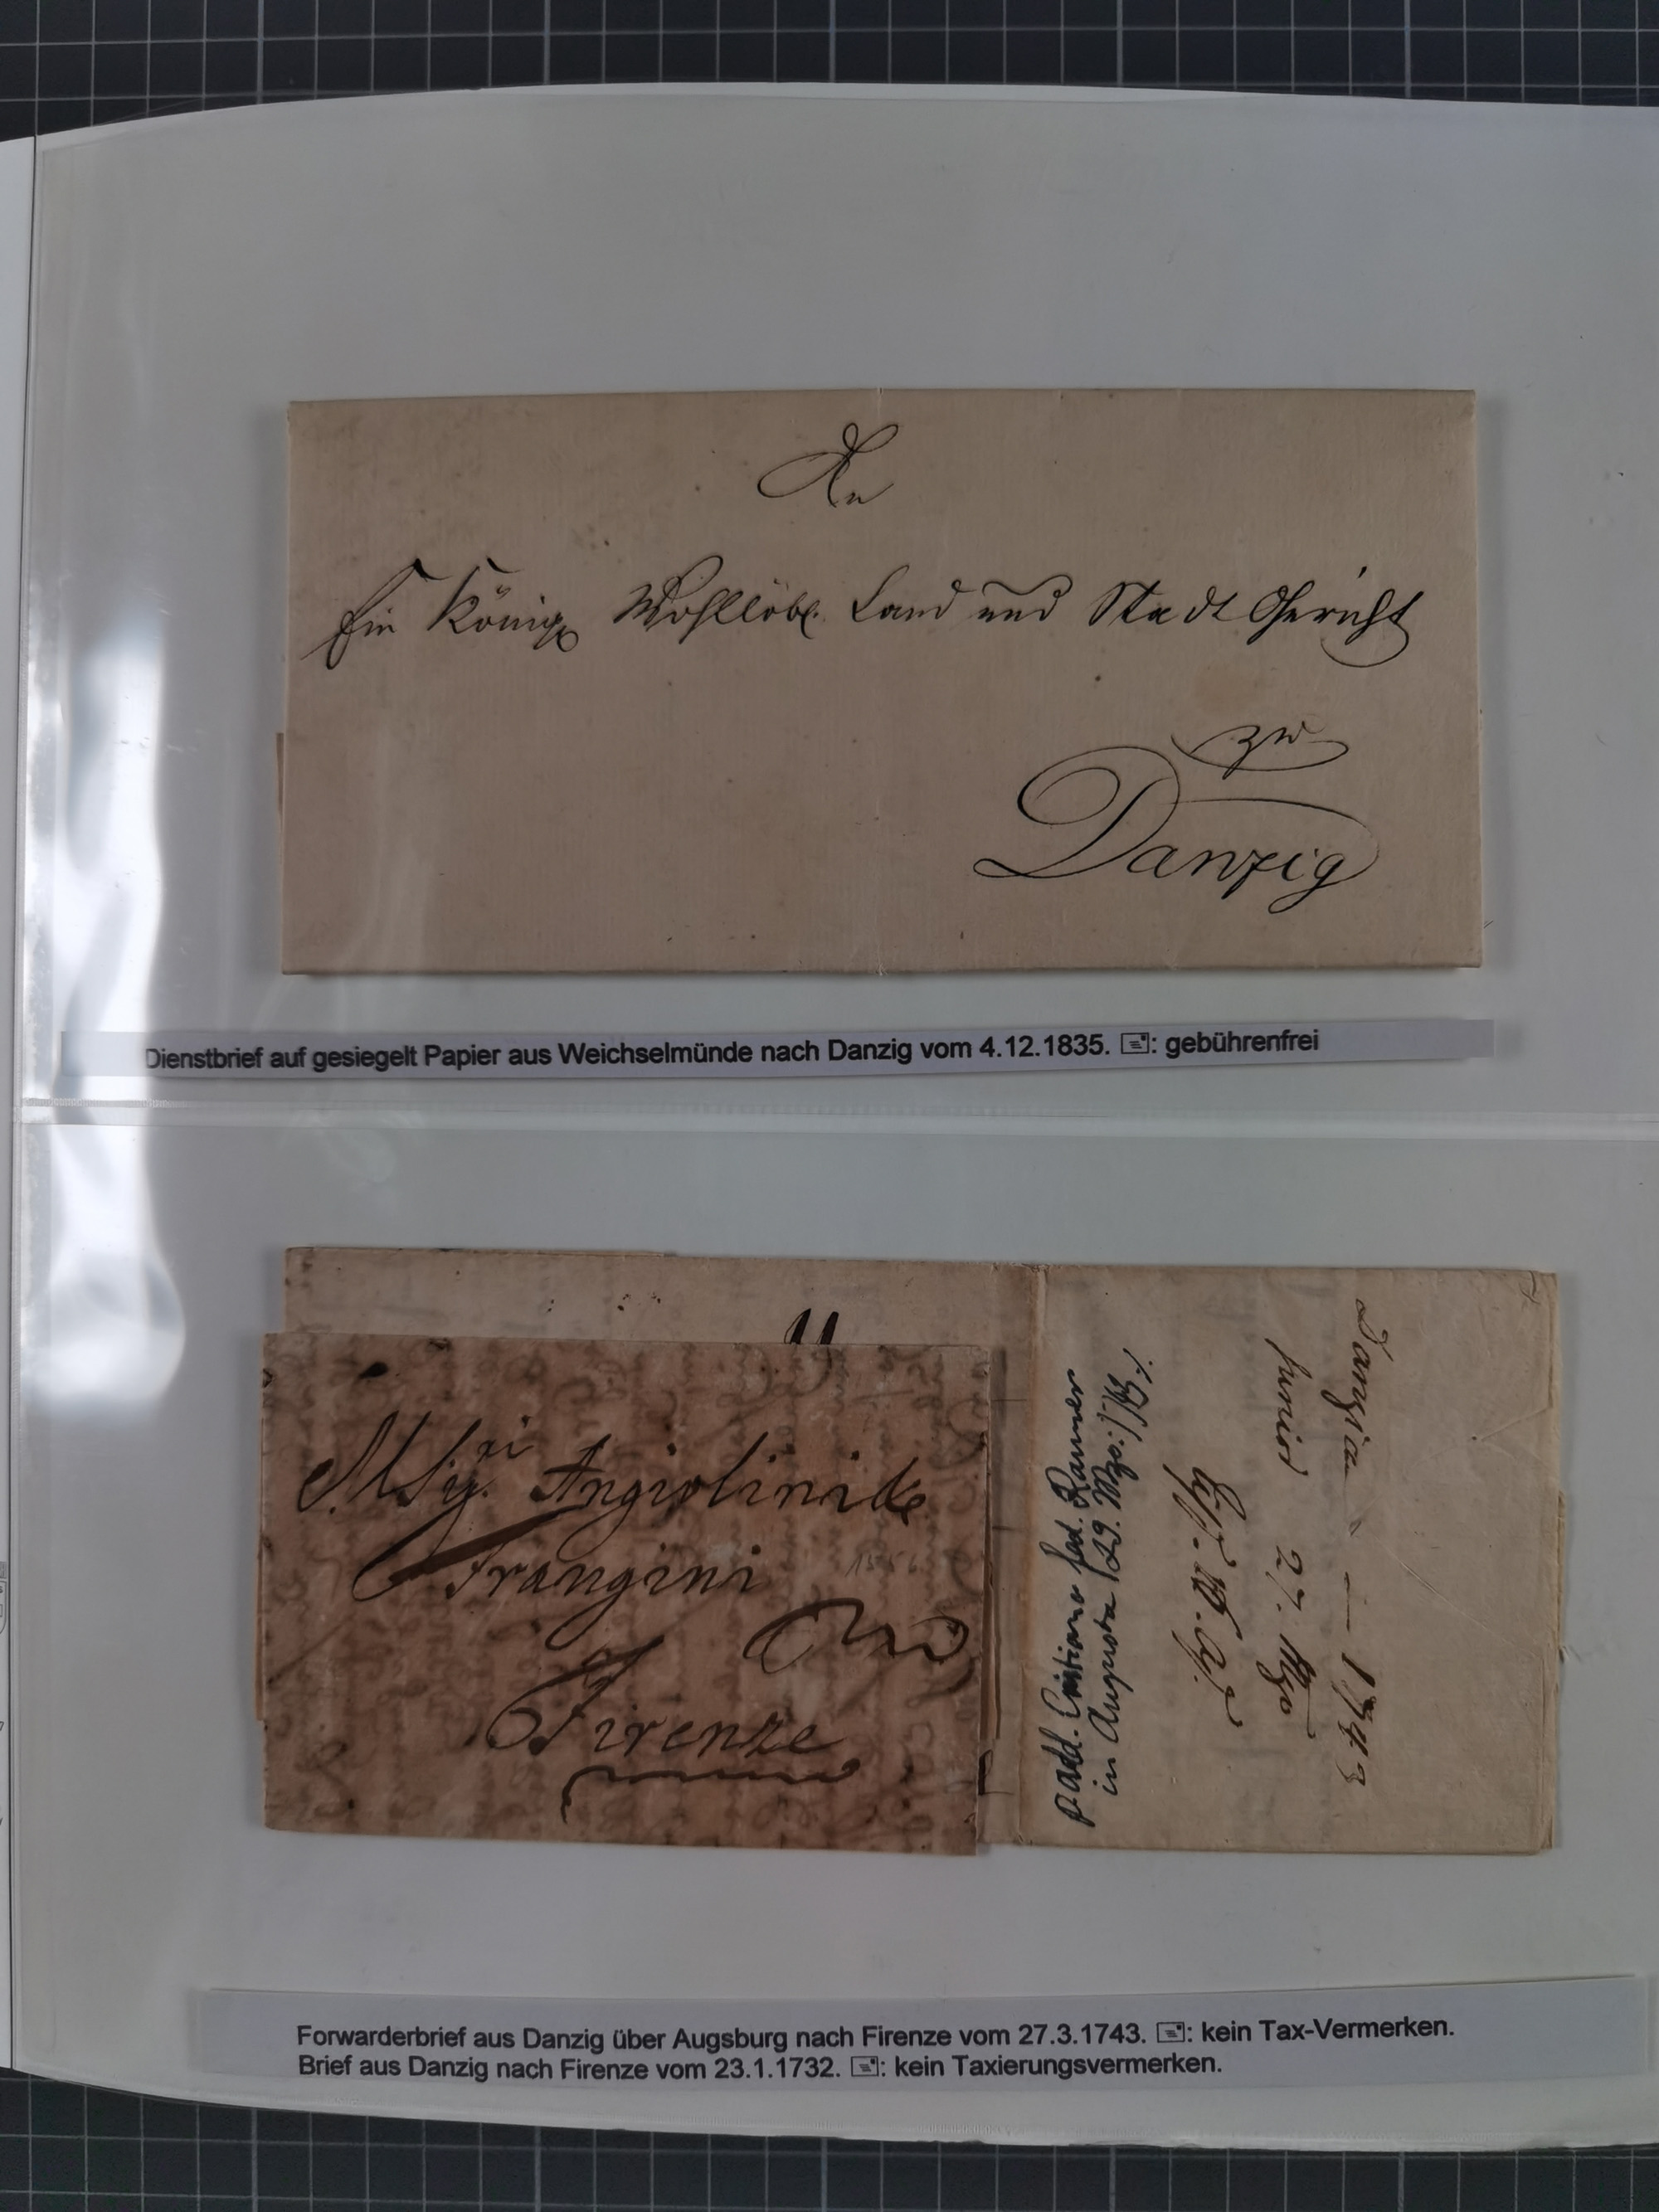 An
Ein Königl Wohllöbl. Land und Stadt Gericht
zu
Danzig
Dienstbrief auf gesiegelt Papier aus Weichselmünde nach Danzig vom 4.12.1835. : gebührenfrei
Angiolini &
Frangini
Firenze
Danzica — 1743
27. Mzo
in Augusta
Forwarderbrief aus Danzig über Augsburg nach Firenze vom 27.3.1743. : kein Tax-Vermerken.
Brief aus Danzig nach Firenze vom 23.1.1732. : kein Taxierungsvermerken.